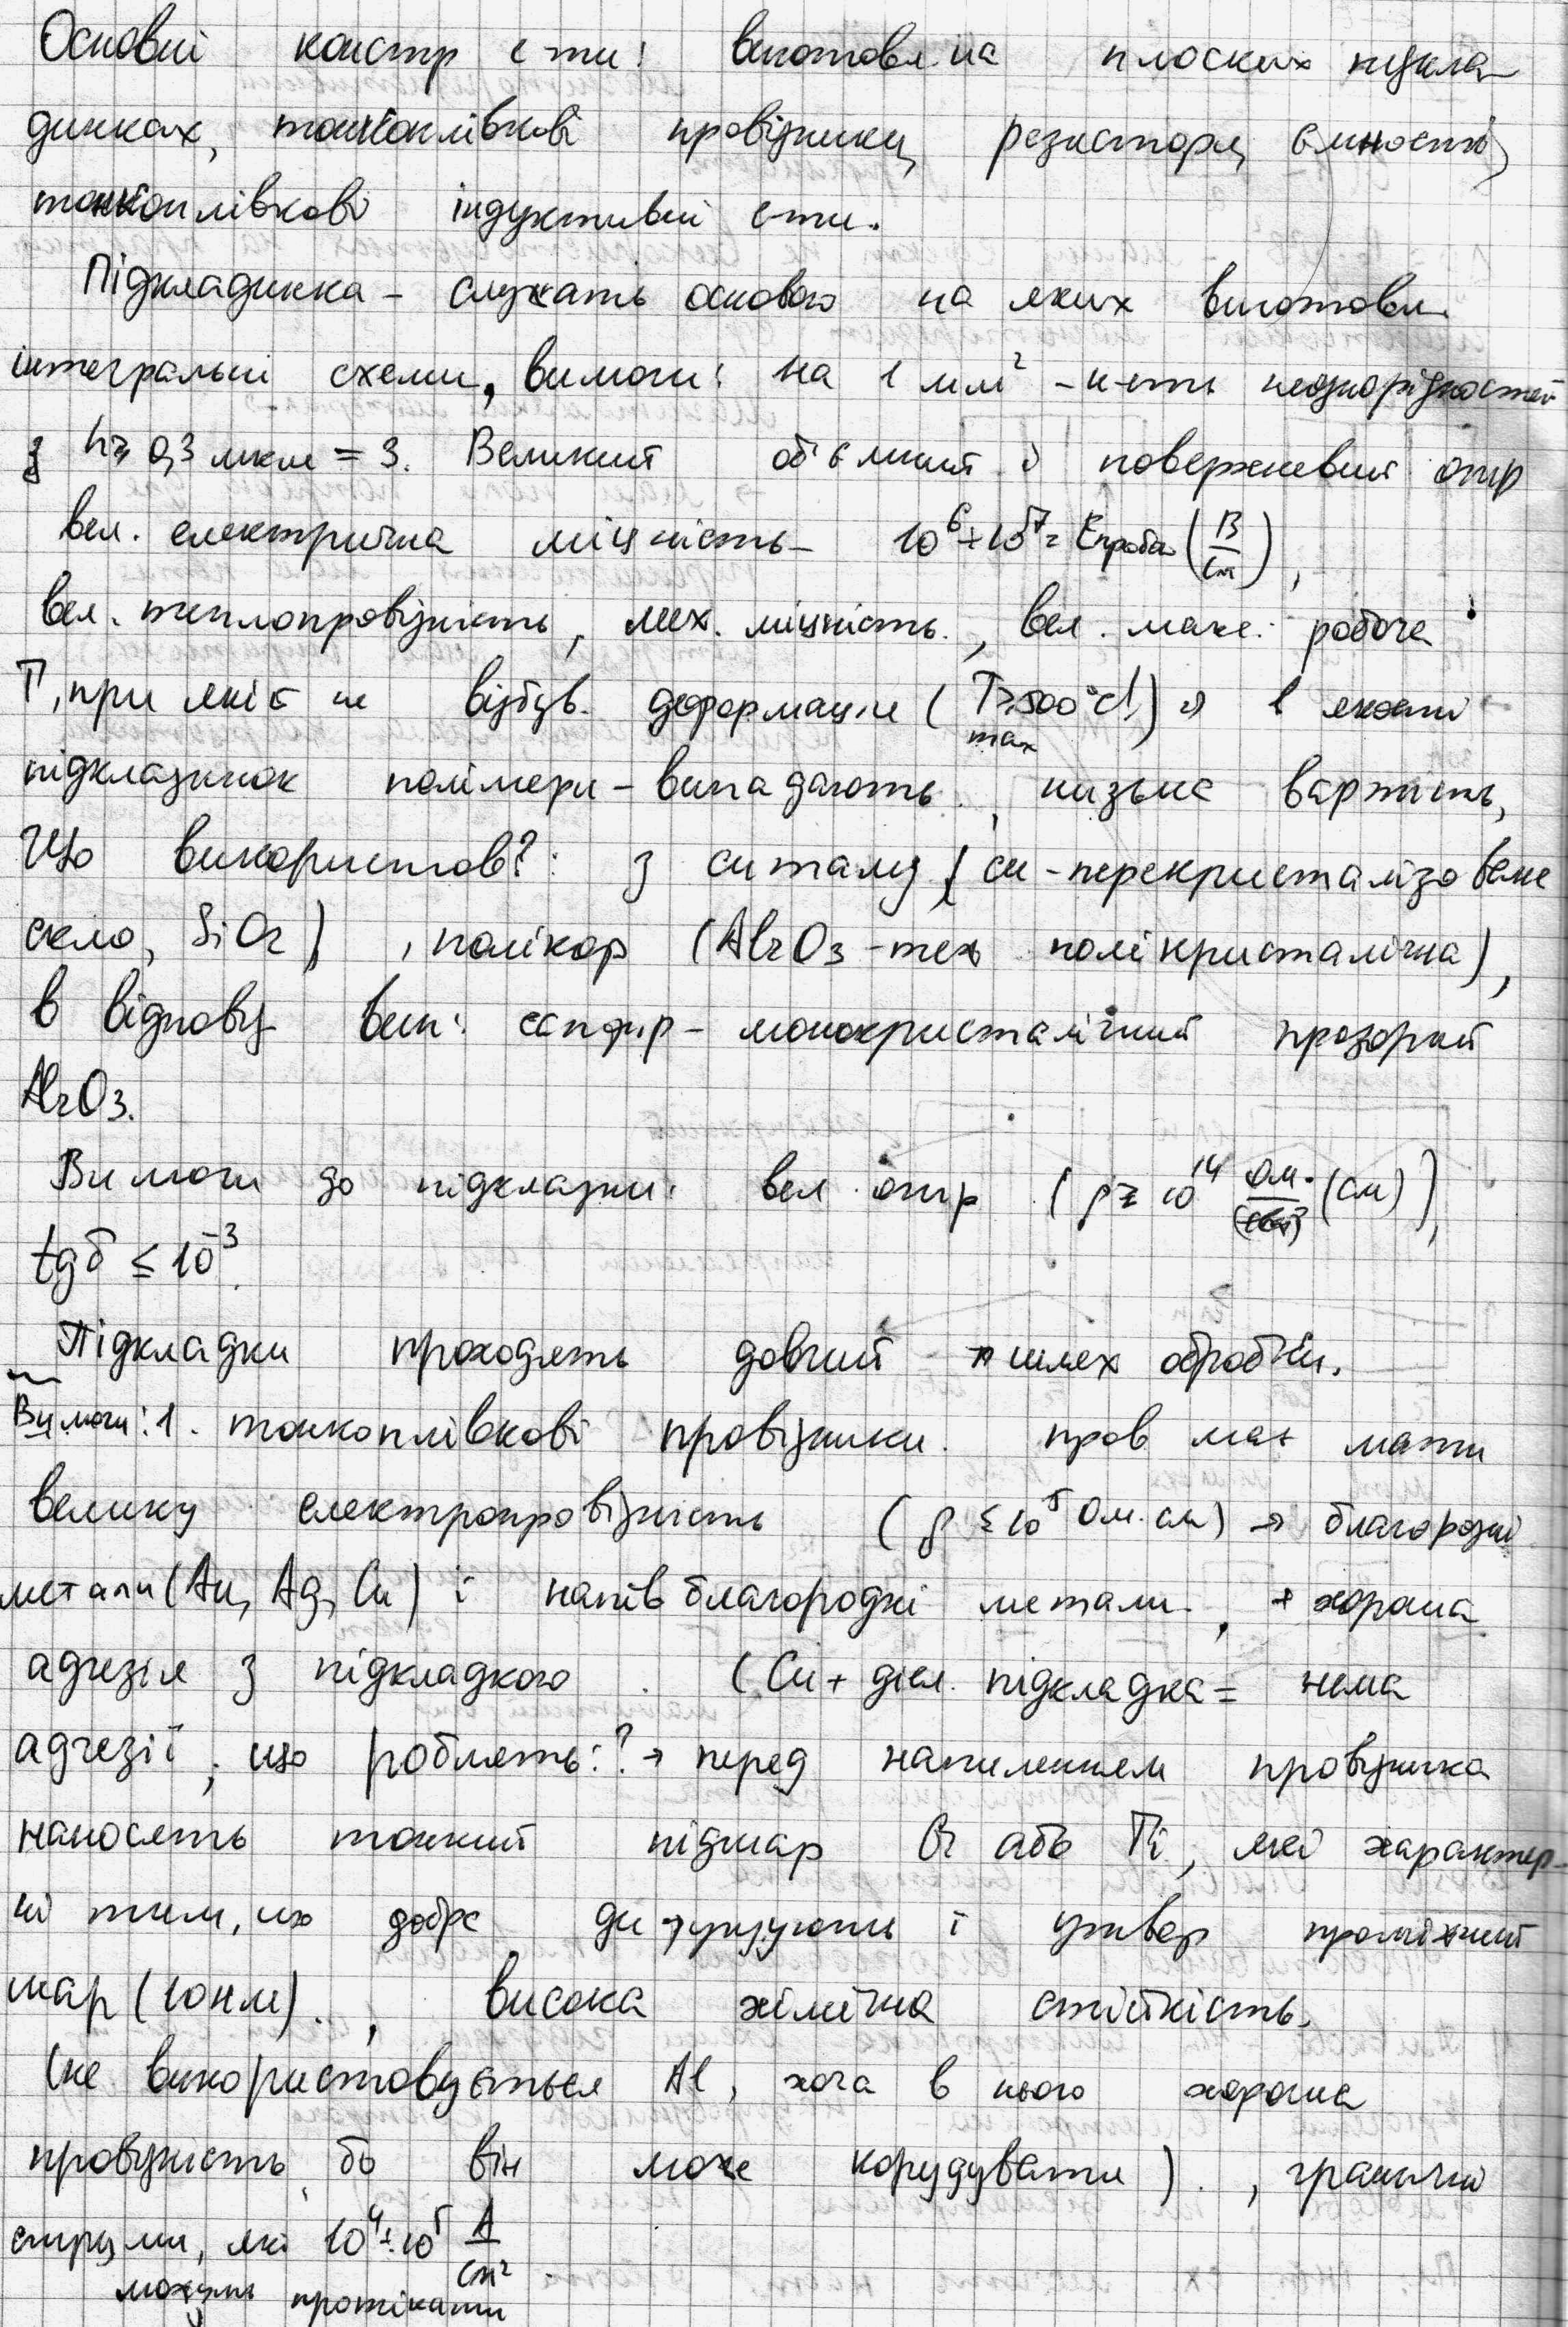 Основні констр є-ти: виготовл. на плоских підкла-
динках, тонкоплівкові провідники, резистори, ємності,
тонкоплівкові індуктивні є-ти.
Підкладинка - служать основою на яких виготовл.
інтегральні схеми, вимоги: на 1 мм² - к-сть неоднорідностей
з h≥0,3 мкм = 3. Великий об'ємний і поверхневий опір
вел. електрична міцність - 10⁶÷10⁷ = Eпробоя (В/см),
вел. теплопровідність, мех. міцність, вел. макс. робоча
T, при якій не відбув. деформації (Tmax≥500°C!) → в якості
підкладинок полімери - випадають, низька вартість,
Що використов?: з ситалу (си - перекристалізоване
скло, SiO₂), полікор (Al₂O₃ - тех полікристалічна),
в відповід вип: сапфір - монокристалічний прозорий
Al₂O₃.
Вимоги до підкладки: вел. опір (ρ ≥ 10¹⁴ Ом·(см)),
tgδ ≤ 10⁻³.
Підкладки проходять довгий шлях обробки.
Вимоги: 1. тонкоплівкові провідники. пров має мати
велику електропровідність (ρ ≤ 10⁵ Ом·см) → благородні
метали (Au, Ag, Cu) і напівблагородні метали, + хороша
адгезія з підкладкою (Cu + діел. підкладка = нема
адгезії, що роблять:? → перед напиленням провідника
наносять тонкий підшар Cr або Ti, які характер-
ні тим, що добре дифундують і утвор проміжний
шар (10нм)., висока хімічна стійкість.
(не використовується Al, хоча в нього хороша
провідність, бо він може кородувати)., граничні
струми, які 10⁴÷10⁵ А/см²
можуть протікати